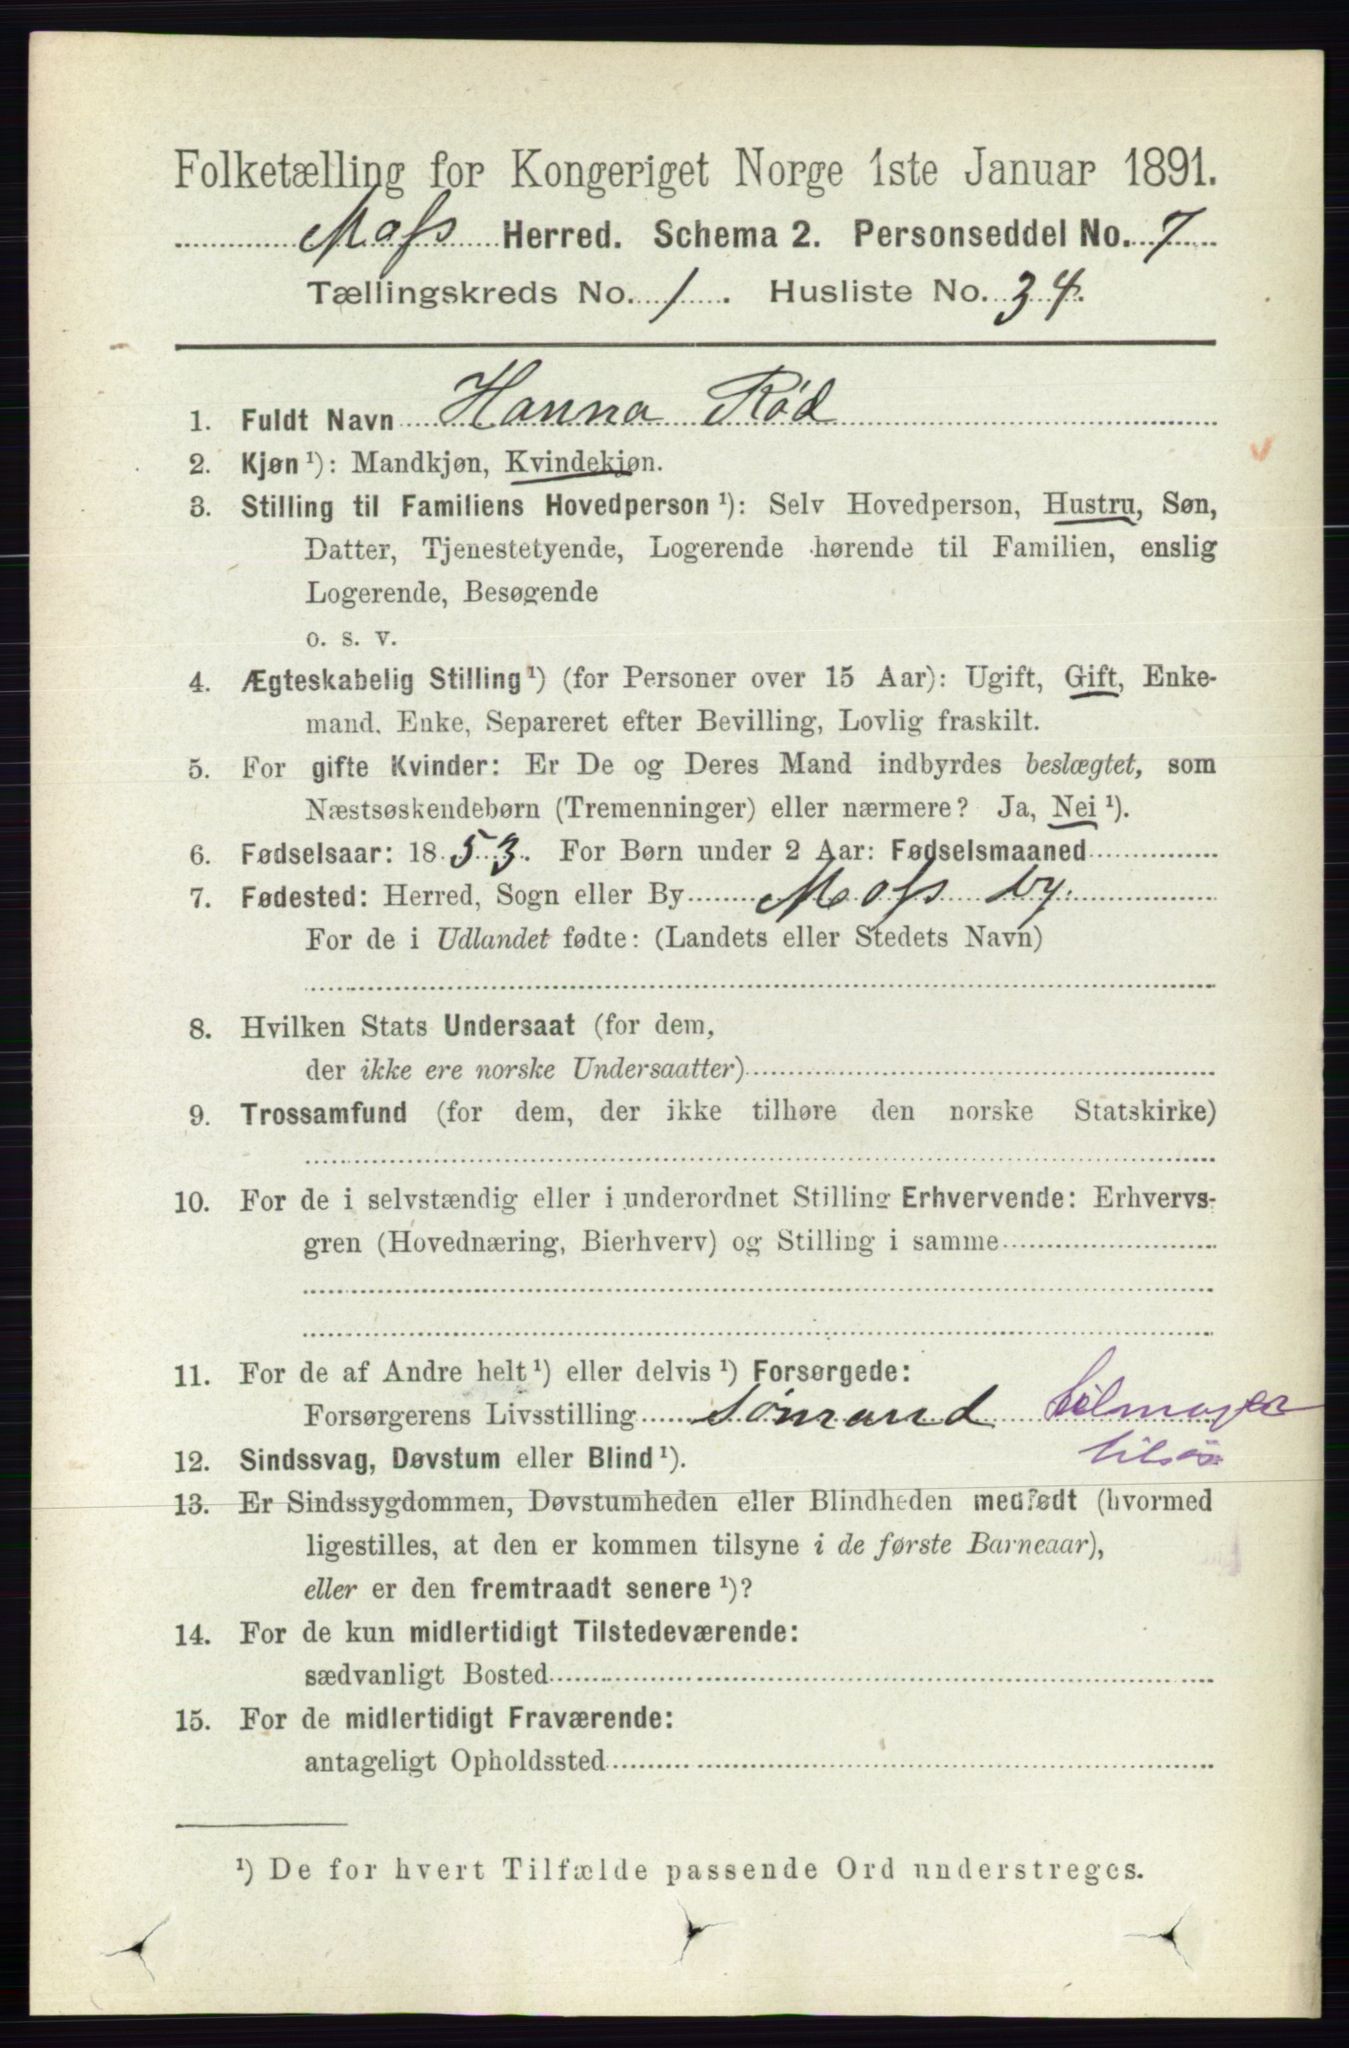 Folketælling for Kongeriget Norge 1ste Januar 1891.
Moss Herred. Schema 2. Personseddel No. 7
Tællingskreds No. 1. Husliste No. 34.
1. Fuldt Navn Hanna Rød
2. Kjøn ¹): Mandkjøn, Kvindekjøn.
3. Stilling til Familiens Hovedperson ¹): Selv Hovedperson, Hustru, Søn,
Datter, Tjenestetyende, Logerende hørende til Familien, enslig
Logerende, Besøgende
o. s. v.
4. Ægteskabelig Stilling ¹) (for Personer over 15 Aar): Ugift, Gift, Enke-
mand, Enke, Separeret efter Bevilling, Lovlig fraskilt.
5. For gifte Kvinder: Er De og Deres Mand indbyrdes beslægtet, som
Næstsøskendebørn (Tremenninger) eller nærmere? Ja, Nei ¹).
6. Fødselsaar: 1853. For Børn under 2 Aar: Fødselsmaaned
7. Fødested: Herred, Sogn eller By Moss by.
For de i Udlandet fødte: (Landets eller Stedets Navn)
8. Hvilken Stats Undersaat (for dem,
der ikke ere norske Undersaatter)
9. Trossamfund (for dem, der ikke tilhøre den norske Statskirke)
10. For de i selvstændig eller i underordnet Stilling Erhvervende: Erhvervs-
gren (Hovednæring, Bierhverv) og Stilling i samme
11. For de af Andre helt ¹) eller delvis ¹) Forsørgede:
Forsørgerens Livsstilling Sömand Seilmager
tilsøs
12. Sindssvag, Døvstum eller Blind ¹).
13. Er Sindssygdommen, Døvstumheden eller Blindheden medfødt (hvormed
ligestilles, at den er kommen tilsyne i de første Barneaar),
eller er den fremtraadt senere ¹)?
14. For de kun midlertidigt Tilstedeværende:
sædvanligt Bosted
15. For de midlertidigt Fraværende:
antageligt Opholdssted
¹) De for hvert Tilfælde passende Ord understreges.